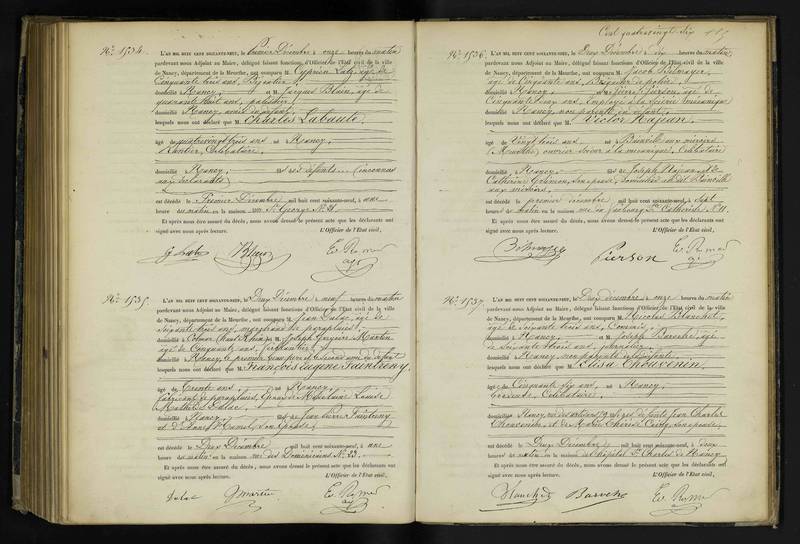 No. 1534.
L'AN MIL HUIT CENT SOIXANTE-NEUF, le Premier Décembre à onze heures du matin
pardevant nous Adjoint au Maire, délégué faisant fonctions d'Officier de l'Etat civil de la ville
de Nancy, département de la Meurthe, ont comparu M. Cyprien
Cinquante trois ans,
domicilié à Nancy, et M. Jacques Blain, âgé de
quarante huit ans,
domicilié à Nancy, amis du défunt,
lesquels nous ont déclaré que M. Charles Labaute
âgé de quatrevingt trois ans né à Nancy,
Rentier, Célibataire,
domicilié à Nancy, inconnus
aux déclarants
est décédé le Premier Décembre mil huit cent soixante-neuf, à une
heure du matin en la maison rue St. George No. 31
Et après nous être assuré du décès, nous avons dressé le présent acte que les déclarants ont
signé avec nous après lecture. L'Officier de l'Etat civil,
No. 1535.
L'AN MIL HUIT CENT SOIXANTE-NEUF, le Deux Décembre à neuf heures du matin
pardevant nous Adjoint au Maire, délégué faisant fonctions d'Officier de l'Etat civil de la ville
de Nancy, département de la Meurthe, ont comparu M. Jean Dalac, âgé de
Soixante trois ans, marchand de parapluies,
domicilié à Colmar (Haut Rhin) et M. Joseph Martin
âgé de Cinquante ans, ferblantier,
domicilié à Nancy, le premier beau père et le second ami du défunt
lesquels nous ont déclaré que M. François Eugène Faintreny,
âgé de Trente ans, né à Nancy,
fabricant de parapluies, Epoux de Madelaine Louise
Mathilde Dalac,
domicilié à Nancy, fils de Jean Pierre Faintreny
et d'Anne son épouse,
est décédé le Deux Décembre mil huit cent soixante-neuf, à une
heure du matin en la maison rue des Dominicains No. 33.
Et après nous être assuré du décès, nous avons dressé le présent acte que les déclarants ont
signé avec nous après lecture. L'Officier de l'Etat civil,
Dalac Martin
Cent quatrevingt Six
No. 1536.
L'AN MIL HUIT CENT SOIXANTE-NEUF, le Deux Décembre à dix heures du matin,
pardevant nous Adjoint au Maire, délégué faisant fonctions d'Officier de l'Etat civil de la ville
de Nancy, département de la Meurthe, ont comparu M. Jacob
âgé de Cinquante ans,
domicilié à Nancy, et M. Pierre Pierson, âgé de
Cinquante ans, Employé à la
domicilié à Nancy, non parents du défunt,
lesquels nous ont déclaré que M. Victor Hajean,
âgé de Vingt trois ans né à Blainville aux miroirs
(Meurthe) ouvrier à la mécanique, Célibataire
domicilié à Nancy, fils de Joseph Hajean et de
Catherine son épouse, domiciliés à Blainville
aux miroirs,
est décédé le premier décembre mil huit cent soixante-neuf, à sept
heures du matin en la maison rue du faubourg Ste. Catherine No. 11.
Et après nous être assuré du décès, nous avons dressé le présent acte que les déclarants ont
signé avec nous après lecture. L'Officier de l'Etat civil,
Pierson
No. 1537.
L'AN MIL HUIT CENT SOIXANTE-NEUF, le Deux décembre à onze heures du matin
pardevant nous Adjoint au Maire, délégué faisant fonctions d'Officier de l'Etat civil de la ville
de Nancy, département de la Meurthe, ont comparu M. Nicolas Blanchet,
âgé de Soixante trois ans, Commis,
domicilié à Nancy, et M. Joseph Barveche, âgé
de Soixante trois ans, journalier,
domicilié à Nancy, non parents de la défunte,
lesquels nous ont déclaré que Elisa Chouvenin,
âgée de Cinquante six ans, née à Nancy,
brodeuse, Célibataire,
domiciliée à Nancy, fille de Jean Charles
Chouvenin et de Marie Thérèse son épouse,
est décédée le Deux Décembre mil huit cent soixante-neuf, à deux
heures du matin en la maison de l'hôpital St. Charles de Nancy
Et après nous être assuré du décès, nous avons dressé le présent acte que les déclarants ont
signé avec nous après lecture. L'Officier de l'Etat civil,
Blanchet Barveche